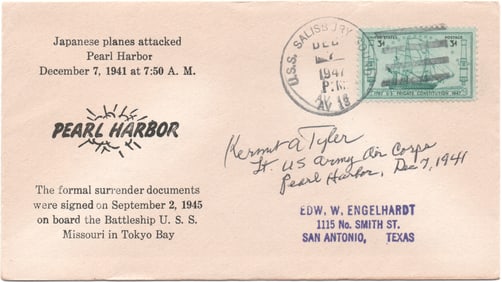 Japanese planes attacked
Pearl Harbor
December 7, 1941 at 7:50 A. M.
PEARL HARBOR
The formal surrender documents
were signed on September 2, 1945
on board the Battleship U. S. S.
Missouri in Tokyo Bay
U.S.S. SALISBURY
DEC
7
1947
P.M.
UNITED STATES POSTAGE
3¢ 3¢
1797 U.S. FRIGATE CONSTITUTION 1947
Kermit A Tyler
Lt. US Army Air Corps
Pearl Harbor, Dec 7, 1941
EDW. W. ENGELHARDT
1115 No. SMITH ST.
SAN ANTONIO, TEXAS